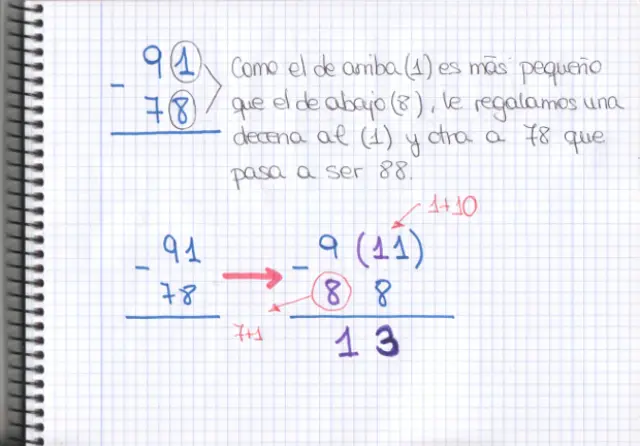 91
- 78
Como el de arriba (1) es más pequeño
que el de abajo (8), le regalamos una
decena al (1) y otra a 78 que
pasa a ser 88.
1+10
91
- 78
- 9 (11)
8 8
7+1
1 3